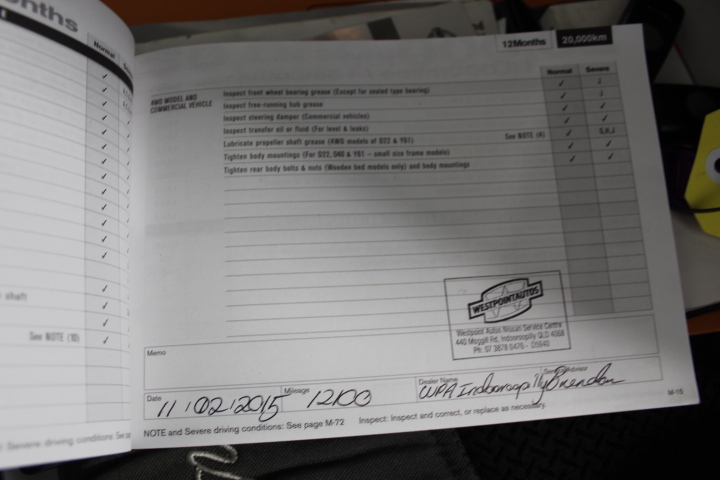 onths
Normal
See NOTE (10)
shaft
Severe driving conditions: See
12Months 20,000km
Normal Severe
4WD MODEL AND COMMERCIAL VEHICLE
Inspect front wheel bearing grease (Except for sealed type bearing) ✓ J
Inspect free-running hub grease ✓ J
Inspect steering damper (Commercial vehicles) ✓ ✓
Inspect transfer oil or fluid (For level & leaks) ✓ ✓
Lubricate propeller shaft grease (4WD models of D22 & Y61) See NOTE (4) ✓ S,K,J
Tighten body mountings (For D22, D40 & Y61 – small size frame models) ✓ ✓
Tighten rear body bolts & nuts (Wooden bed models only) and body mountings ✓ ✓
WESTPOINTAUTOS
Westpoint Autos Nissan Service Centre
440 Moggill Rd, Indooroopilly QLD 4068
Ph: 07 3878 0476 - D5940
Memo
Date 11/02/2015 Mileage 12100 Dealer Name WPA Indooroopilly Service Advisor Brendon
NOTE and Severe driving conditions: See page M-72 Inspect: Inspect and correct, or replace as necessary.
M-15